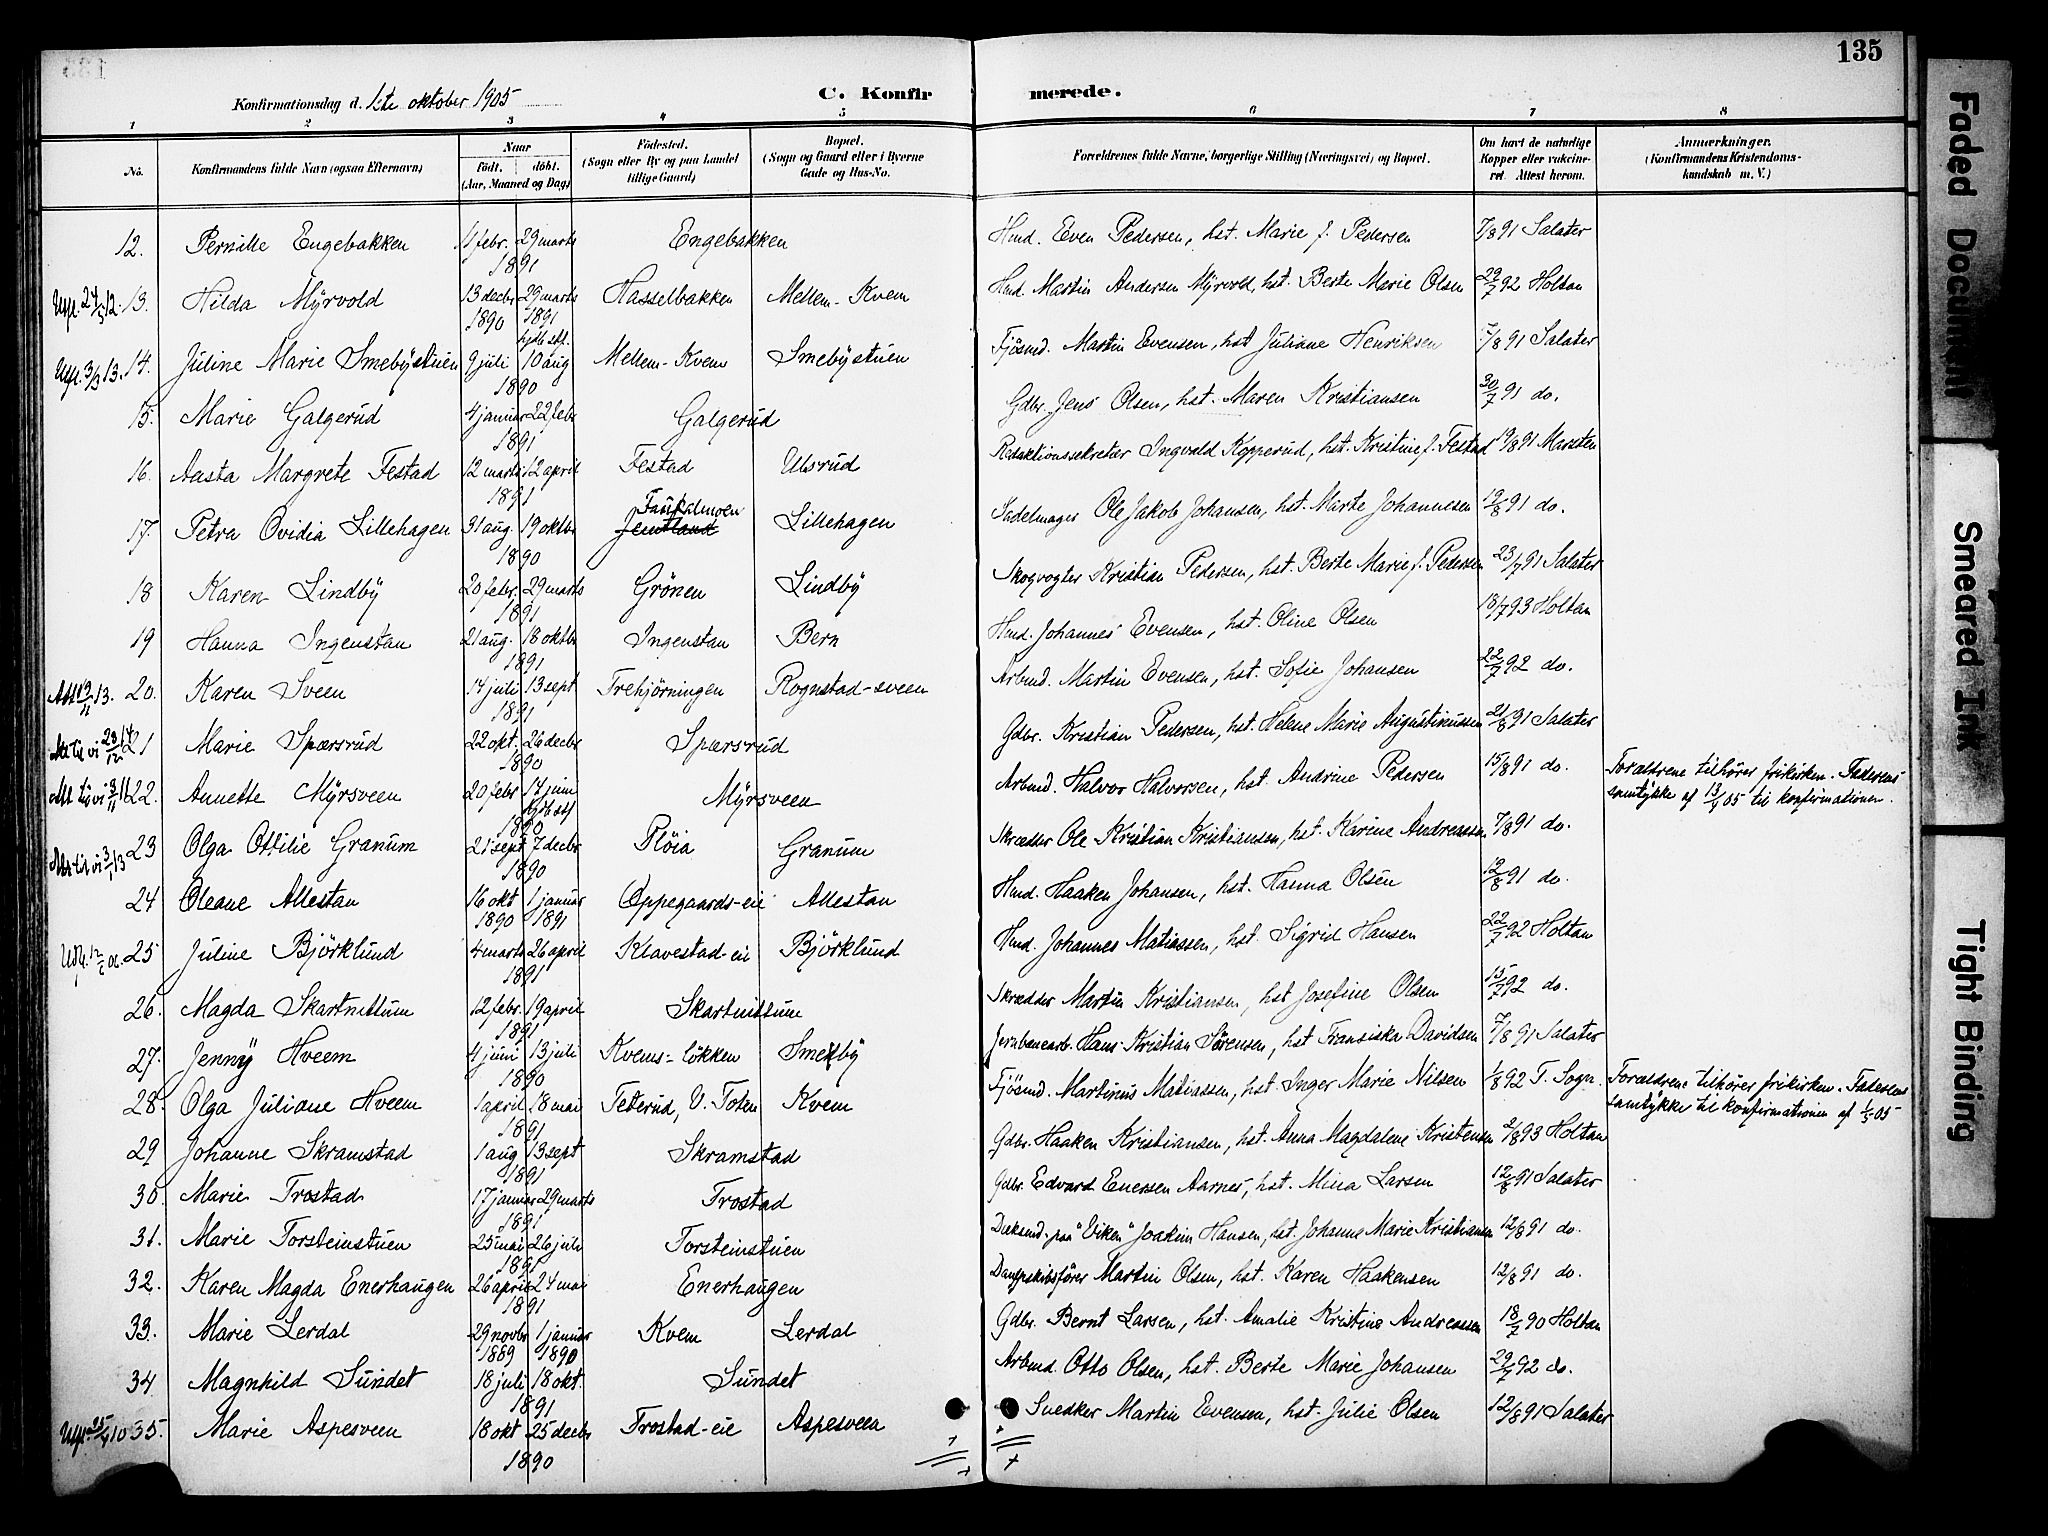 135
Konfirmationsdag d. 1ste oktober 1905
C. Konfirmerede.
1 2 3 4 5 6 7 8
No. Konfirmandens fulde Navn (ogsaa Efternavn) Naar Födt. döbt. (Aar, Maaned og Dag) Födested. (Sogn eller By og paa Landet tillige Gaard) Bopæl. (Sogn og Gaard eller i Byerne Gade og Hus-No. Forældrenes fulde Navne, borgerlige Stilling (Næringsvei) og Bopæl. Om havt de naturlige Kopper eller vakcineret. Attest herom. Anmærkninger. (Konfirmandens Kristendomskundskab m. V.)
12. Pernille Engebakken 11 febr. 29 marts 1891 Engebakken Hmd. Even Pedersen, hst. Marie f. Pedersen 7/8 91 Salater
13. Hilda Myrvold 13 decbr 1890 29 marts 1891 Hasselbakken Mellem-Kvem Hmd. Martin Andersen Myrvold, hst. Berte Marie Olsen 29/7 92 Holtan
14. Juline Marie Smebystuen 9 juli hjdbst. 10 aug 1890 Mellem-Kvem Smebystuen Fjösmd. Martin Evensen, hst. Juliane Henriksen 7/8 91 Salater
15. Marie Galgerud 4 januar 22 febr 1891 Galgerud Gdbr. Jens Olsen, hst. Maren Kristiansen 30/7 91 do.
16. Aasta Margrete Festad 12 marts 12 april 1891 Festad Ulsrud Redaktionssekretær Ingvald Kopperud, hst. Kristine f. Festad 19/8 91 Marsten
17. Petra Ovidia Lillehagen 31 aug. 19 oktbr 1890 Jemtland Lillehagen Sadelmager Ole Jakob Johansen, hst. Marte Johannesen 19/8 91 do.
18 Karen Lindby 20 febr. 29 marts 1891 Grönen Lindby Skogvogter Kristian Pedersen, hst. Berte Marie f. Pedersen 23/7 91 Salater
19 Hanna Ingenstan 21 aug. 18 oktbr 1891 Ingenstan Bern Hmd. Johannes Evensen, hst. Oline Olsen 18/7 93 Holtan
20. Karen Sveen 14 juli 13 sept 1891 Trehjörningen Rognstad-sveen Arbmd. Martin Evensen, hst. Sofie Johansen 22/7 92 do.
21 Marie Spærsrud 22 okt. 26 decbr 1890 Spærsrud Gdbr. Kristian Pedersen, hst. Helene Marie Augustinussen 21/8 91 Salater
22. Annette Myrsveen 20 febr 17 juni 1890 Myrsveen Arbmd. Halvor Halvorsen, hst. Andrine Pedersen 15/8 91 do. Forældrene tilhører frikirken. Faderens samtykke af 13/4 05 til konfirmationen.
23 Olga Ottilie Granum 21 sept 7 decbr 1890 Plöia Granum Skrædder Ole Kristian Kristiansen, hst. Karine Andreassen 7/8 91 do.
24 Oleane Allestan 16 okt 1890 1 januar 1891 Oppegaards-eie Allestan Hmd. Haaken Johansen, hst. Hanna Olsen 12/8 91 do.
25 Juline Björklund 4 marts 26 april 1891 Klavestad-eie Björklund Hmd. Johannes Matiassen, hst. Sigrid Hansen 22/7 92 Holtan
26. Magda Skartnittum 12 febr. 19 april 1891 Skartnittum Skrædder Martin Kristiansen, hst Josefine Olsen 15/7 92 do.
27. Jenny Hveem 4 juni 13 juli 1890 Kvems-lökken Smedby Jernbanearb. Hans Kristian Sörensen, hst Fransiska Davidsen 7/8 91 Salater
28. Olga Juliane Hveem 1 april 18 mai 1891 Teterud, V. Toten Kvem Fjösmd. Martinus Matiassen, hst. Inger Marie Nilsen 1/8 92 T. Sogn. Forældrene tilhører frikirken. Faderens samtykke til konfirmationen af 1/5 05
29 Johanne Skramstad 1 aug 13 sept 1891 Skramstad Gdbr. Haaken Kristiansen, hst. Anna Magdalene Kristensen 2/8 93 Holtan
30. Marie Trostad 17 januar 29 marts 1891 Trostad Gdbr. Edvard Enersen Aarnes, hst. Mina Larsen 12/8 91 Salater
31. Marie Torsteinstuen 25 mai 26 juli 1891 Torsteinstuen Dæksmd. paa "Viken" Joakim Hansen, hst. Johanne Marie Kristiansen 12/8 91 do.
32. Karen Magda Enerhaugen 26 april 24 mai 1891 Enerhaugen Dampskibsförer Martin Olsen, hst. Karen Haakensen 12/8 91 do.
33. Marie Lerdal 29 novbr 1889 1 januar 1890 Kvem Lerdal Gdbr. Bernt Larsen, hst. Amalie Kristine Andreassen 18/7 90 Holtan
34 Magnhild Sundet 18 juli 18 okt. 1891 Sundet Arbmd. Otto Olsen, hst. Berte Marie Johansen 29/7 92 do.
35. Marie Aspesveen 18 okt 25 decbr 1890 Trostad-eie Aspesveen Snedker Martin Evensen, hst. Julie Olsen 12/8 91 Salater
Faded Document
Smeared Ink
Tight Binding